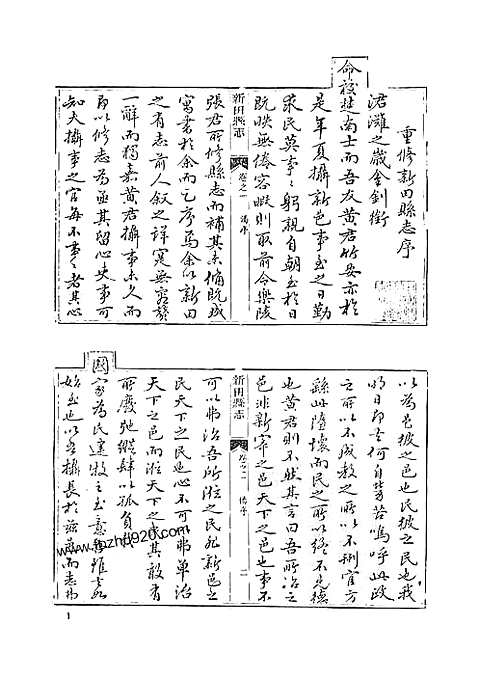 重修新田縣志序
涒灘之歲余銜
命視楚南士而吾友黃君竹安亦於
是年夏攝新邑事至之日勤
求民莫事事躬親自朝至於日
昃無倦容暇則取前令樂陵
新田縣志
卷之一
舊序
張君所修縣志而補其未備既成
寓書於余而乞序焉余以新田
之有志前人叙之詳寔無容贅
一辭而獨嘉黃君攝事未久而
即以修志為亟其留心史事可
知夫攝事之官每不事事者其心
以為邑彼之邑也民彼之民也我
明日即去何自勞苦嗚呼此政
之所以不成教之所以不行官方
繇此墮壞而民之所以終不見德
也黃君則不然其言曰吾所治之
邑非新田之邑天下之邑也事不
新田縣志
卷之一
舊序
二
可以弗治吾所涖之民非新邑之
民天下之民也心不可以弗單治
天下之邑而涖天下之民其敢有
所廢弛縱肆以孤負
國家為民建牧之至意
始至也以
www.lnzhd920.com
1